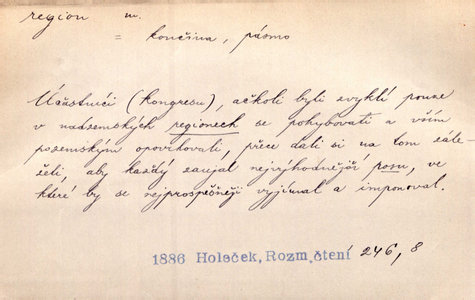 region m.
= končina, pásmo
Účastníci (kongresu), ačkoli byli zvyklí pouze
v nadzemských regionech se pohybovati a vším
pozemským opovrhovati, přece dali si na tom zále-
žeti, aby každý zaujal nejvýhodnější posu, ve
které by se nejprospěšněji vyjímal a imponoval.
1886 Holeček, Rozm. čtení 246, 8